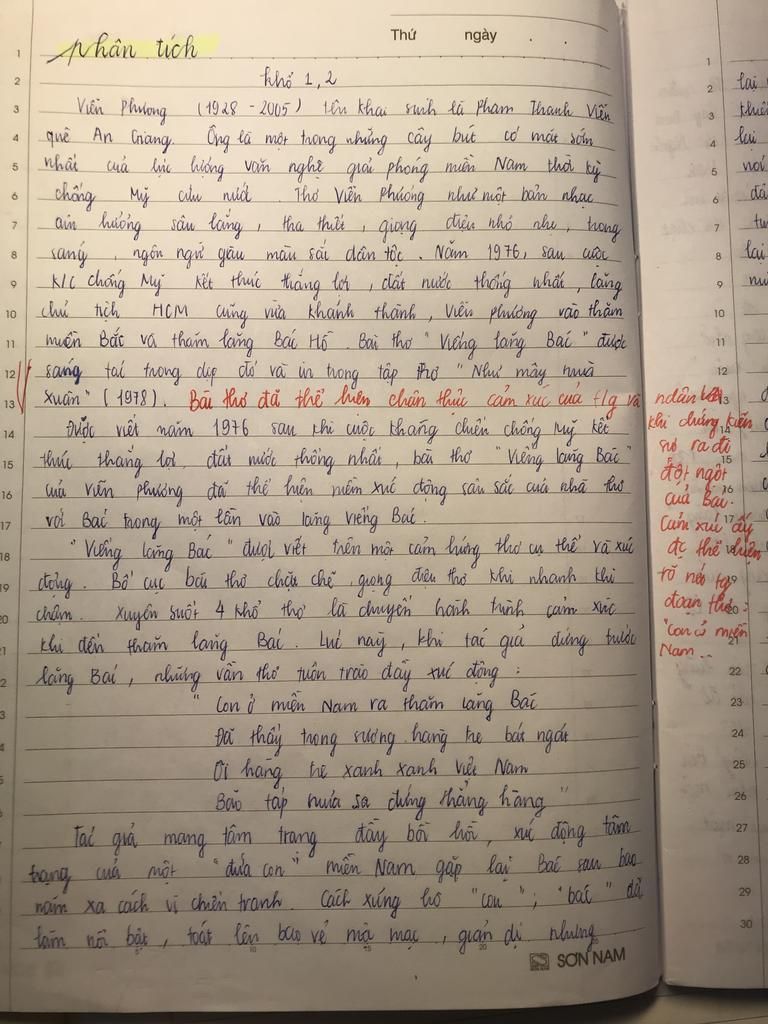 Thứ ngày . .
phân tích
khổ 1, 2
Viễn Phương (1928 - 2005) tên khai sinh là Phạm Thanh Viễn
quê An Giang. Ông là một trong những cây bút có mặt sớm
nhất của lực lượng văn nghệ giải phóng miền Nam thời kỳ
chống Mỹ cứu nước. Thơ Viễn Phương như một bản nhạc
âm hưởng sâu lắng, tha thiết, giọng điệu nhỏ nhẹ, trong
sáng, ngôn ngữ giàu màu sắc dân tộc. Năm 1976, sau cuộc
K/C chống Mỹ kết thúc thắng lợi, đất nước thống nhất, lăng
chủ tịch HCM cũng vừa khánh thành, Viễn Phương vào thăm
miền Bắc và thăm lăng Bác Hồ. Bài thơ "Viếng lăng Bác" được
sáng tác trong dịp đó và in trong tập thơ "Như mây mùa
xuân" (1978). Bài thơ đã thể hiện chân thực cảm xúc của t/g và
Được viết năm 1976 sau khi cuộc kháng chiến chống Mỹ kết
thúc thắng lợi, đất nước thống nhất, bài thơ "Viếng lăng Bác"
của Viễn Phương đã thể hiện niềm xúc động sâu sắc của nhà thơ
với Bác trong một lần vào lăng viếng Bác.
"Viếng lăng Bác" được viết trên một cảm hứng thơ cụ thể và xúc
động. Bố cục bài thơ chặt chẽ, giọng điệu thơ khi nhanh khi
chậm. Xuyên suốt 4 khổ thơ là chuyến hành trình cảm xúc
khi đến thăm lăng Bác. Lúc này, khi tác giả đứng trước
lăng Bác, những vần thơ tuôn trào đầy xúc động:
"Con ở miền Nam ra thăm lăng Bác
Đã thấy trong sương hàng tre bát ngát
Ôi hàng tre xanh xanh Việt Nam
Bão táp mưa sa đứng thẳng hàng"
Tác giả mang tâm trạng đầy bồi hồi, xúc động tâm
trạng của một "đứa con" miền Nam gặp lại Bác sau bao
năm xa cách vì chiến tranh. Cách xưng hô "con"; "bác" đã
làm nổi bật, toát lên bao vẻ mộc mạc, giản dị nhưng
SƠN NAM
ndân
khi chứng kiến
sự ra đi
đột ngột
của Bác.
Cảm xúc ấy
đc thể hiện
rõ nét tg
đoạn thơ:
"Con ở miền
Nam...